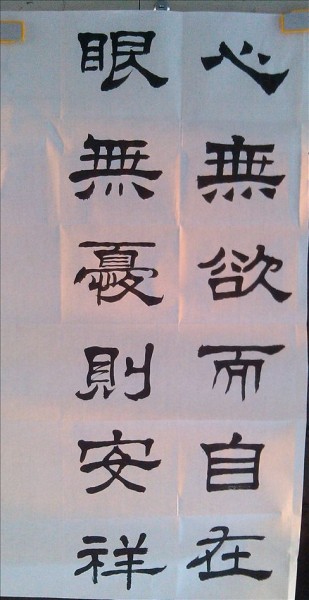 心無欲而自在
眼無憂則安祥